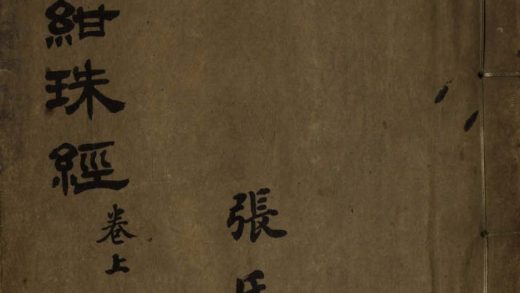 紺珠經
卷上
張氏